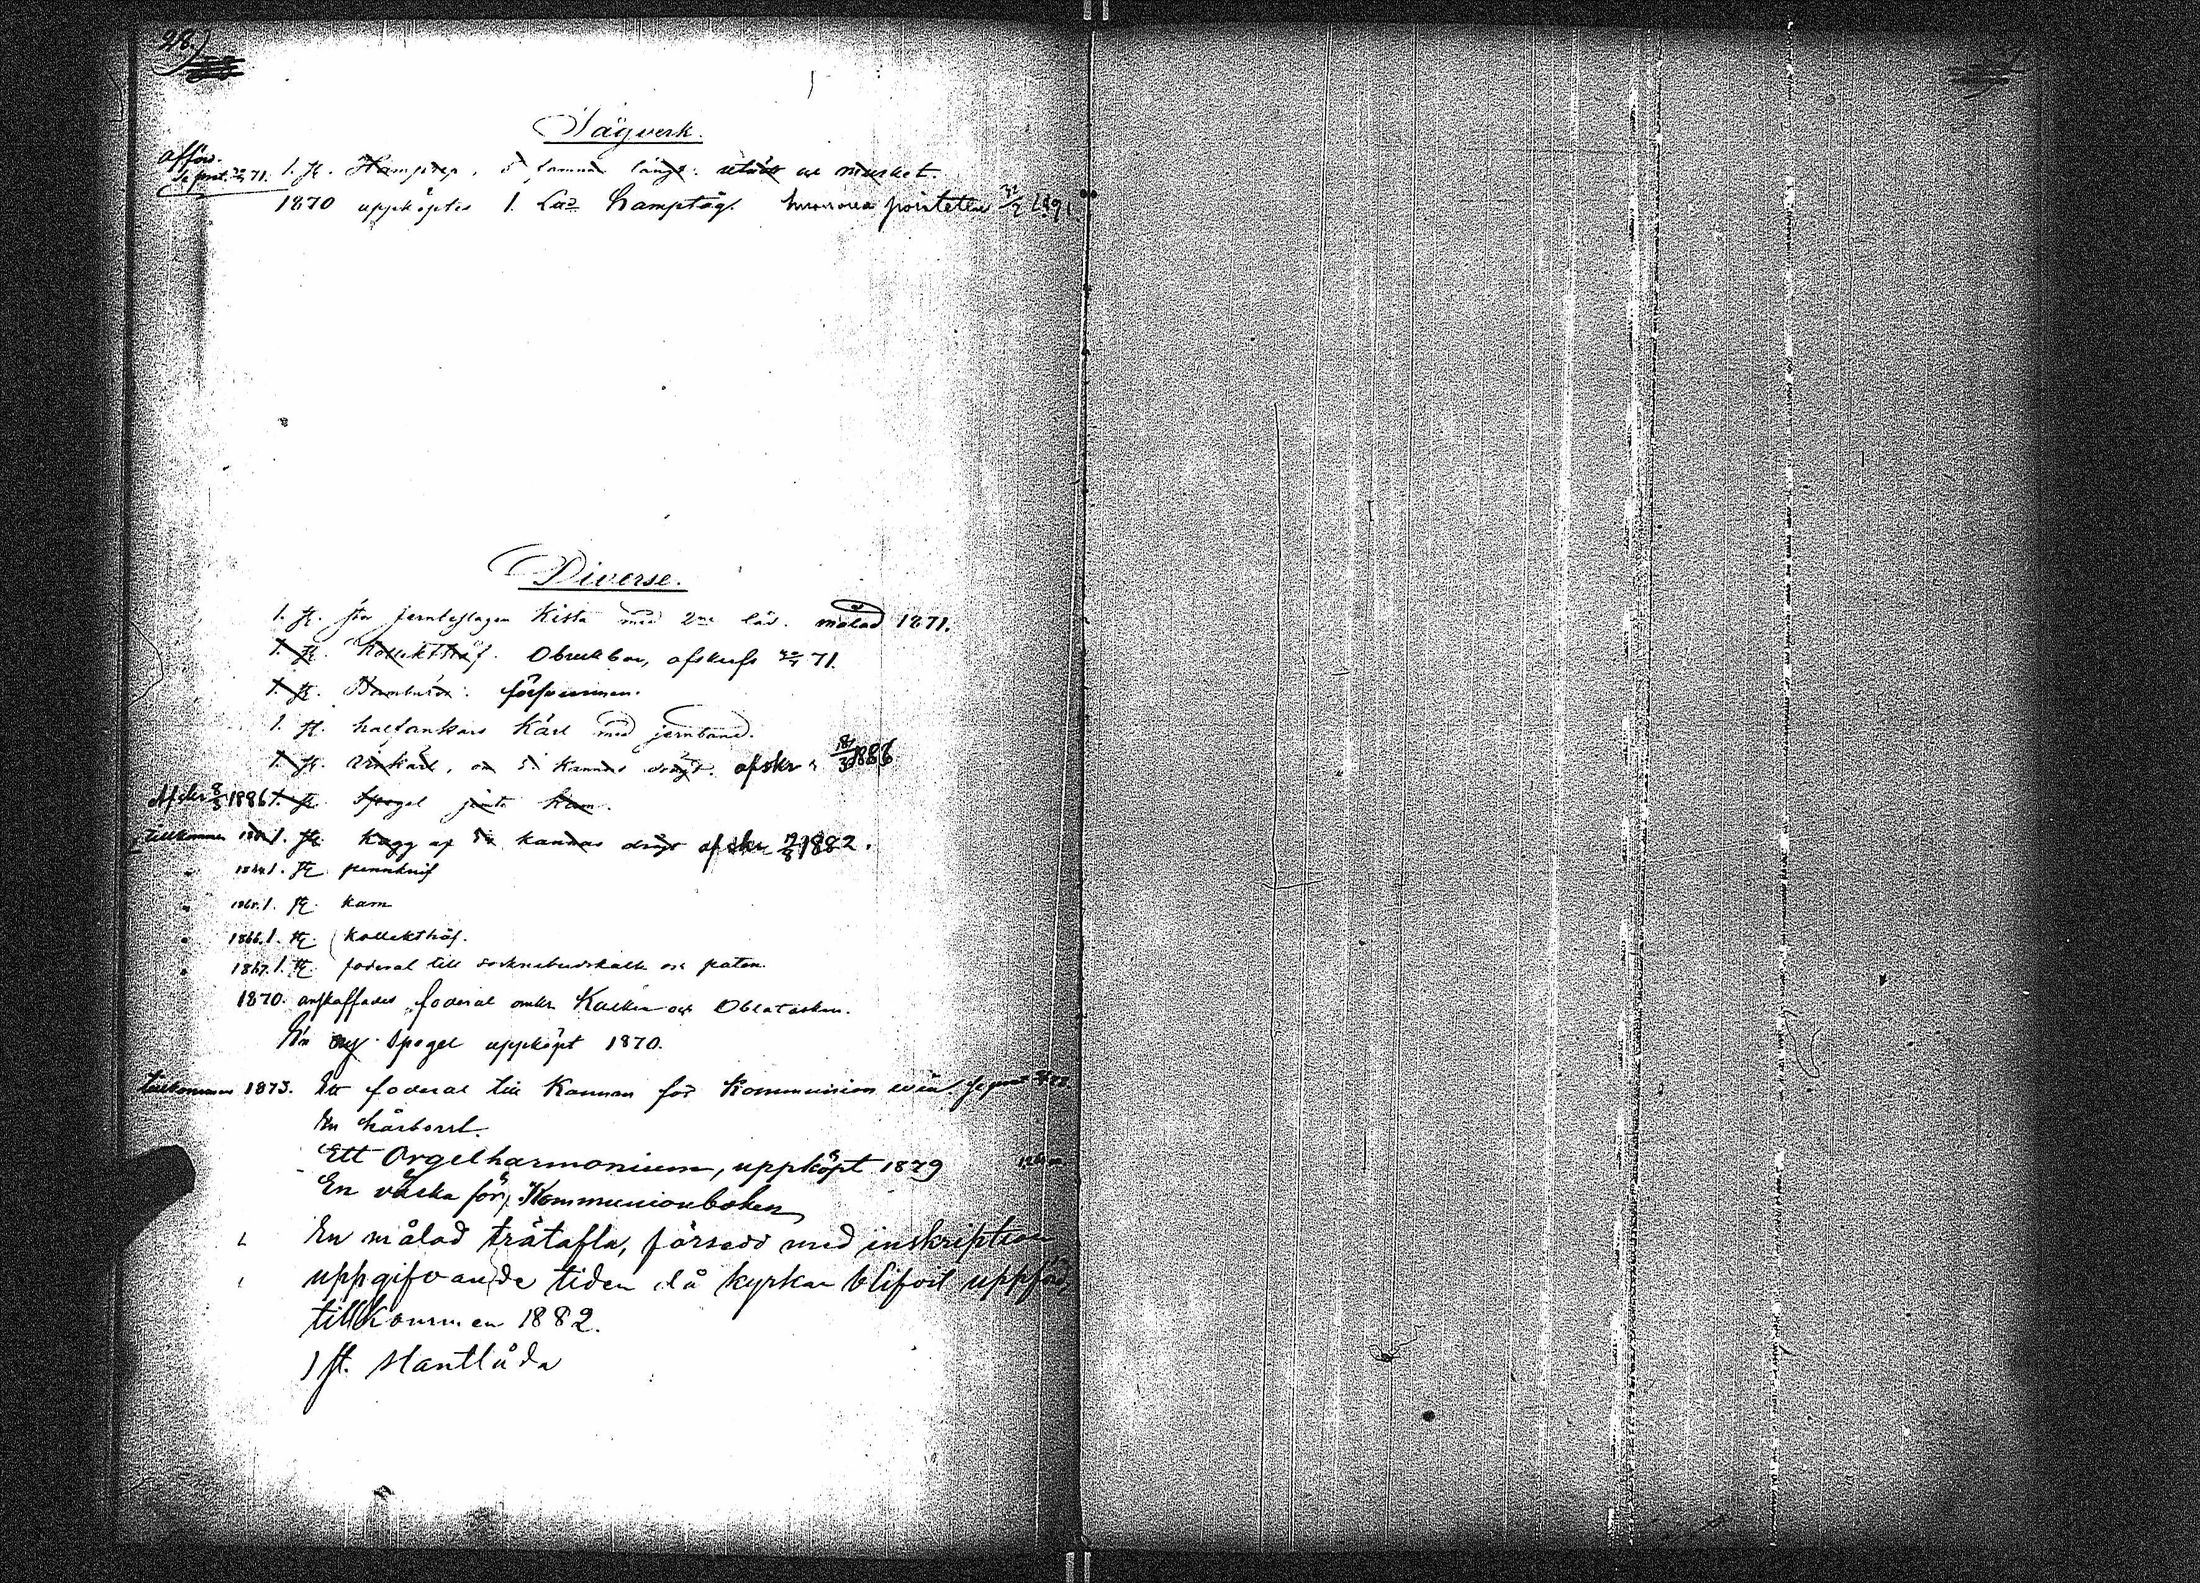 28)
Tågverk.
afförd. 1. st. Hamprep, 5 famnar långt. utnött och murket.
1870 uppköptes 1. hamptåg.
Diverse.
1. st. stor jernbeslagen Kista med 2ne lås. målad 1871.
1. st. Kollekthåf. Obrukbar, afskrefs 71.
1. st. försvunnen.
1. st. halfankars Kärl med jernband.
1. st. Vinkärl, om kannas drägt. afskr. 1886
Afskr 8/3 1886 1. st. Spegel jemte Kam.
tillkommen 1. st. Kagg af kannas drägt afskr 1882.
" 1. st. pennknif
" 1. st. kam
" 1866. 1. st. Kollekthåf.
" 1867. 1. st. foderal till sockenbudskalk och paten.
1870. anskaffades foderal omkr. Kalken och Oblatasken.
En ny Spegel uppköpt 1870.
tillkommen 1873. Ett foderal till Kannan för Kommunion
En hårborst.
Ett Orgelharmonium, uppköpt 1879
En väska för Kommunionboken
En målad trätafla, försedd med inskription
uppgifvande tiden då kyrkan blifvit uppförd,
tillkommen 1882.
1 st. slantlåda